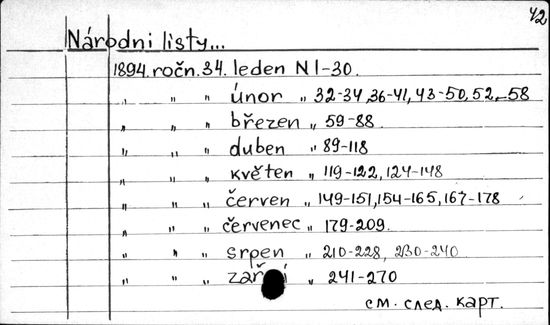 42
Národni listy...
1894. ročn. 34. leden N 1-30.
„ „ „ únor „ 32-34, 36-41, 43-50, 52, -58
„ „ „ březen „ 59-88
„ „ „ duben „ 89-118
„ „ „ květen „ 119-122, 124-148
„ „ „ červen „ 149-151, 154-165, 167-178
„ „ „ červenec „ 179-209.
„ „ „ srpen „ 210-228, 230-240
„ „ „ září „ 241-270
см. след. карт.